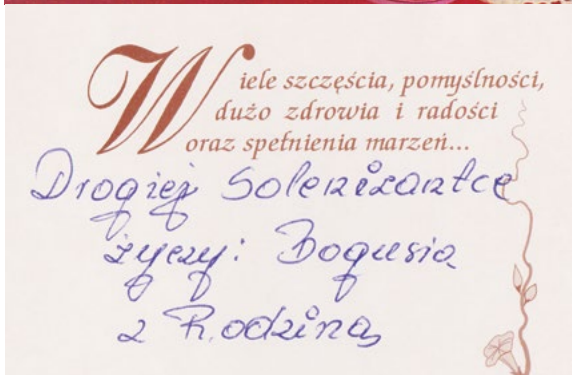 Wiele szczęścia, pomyślności,
dużo zdrowia i radości
oraz spełnienia marzeń...
Drogiej Solenizantce
życzy: Bogusia
z Rodziną